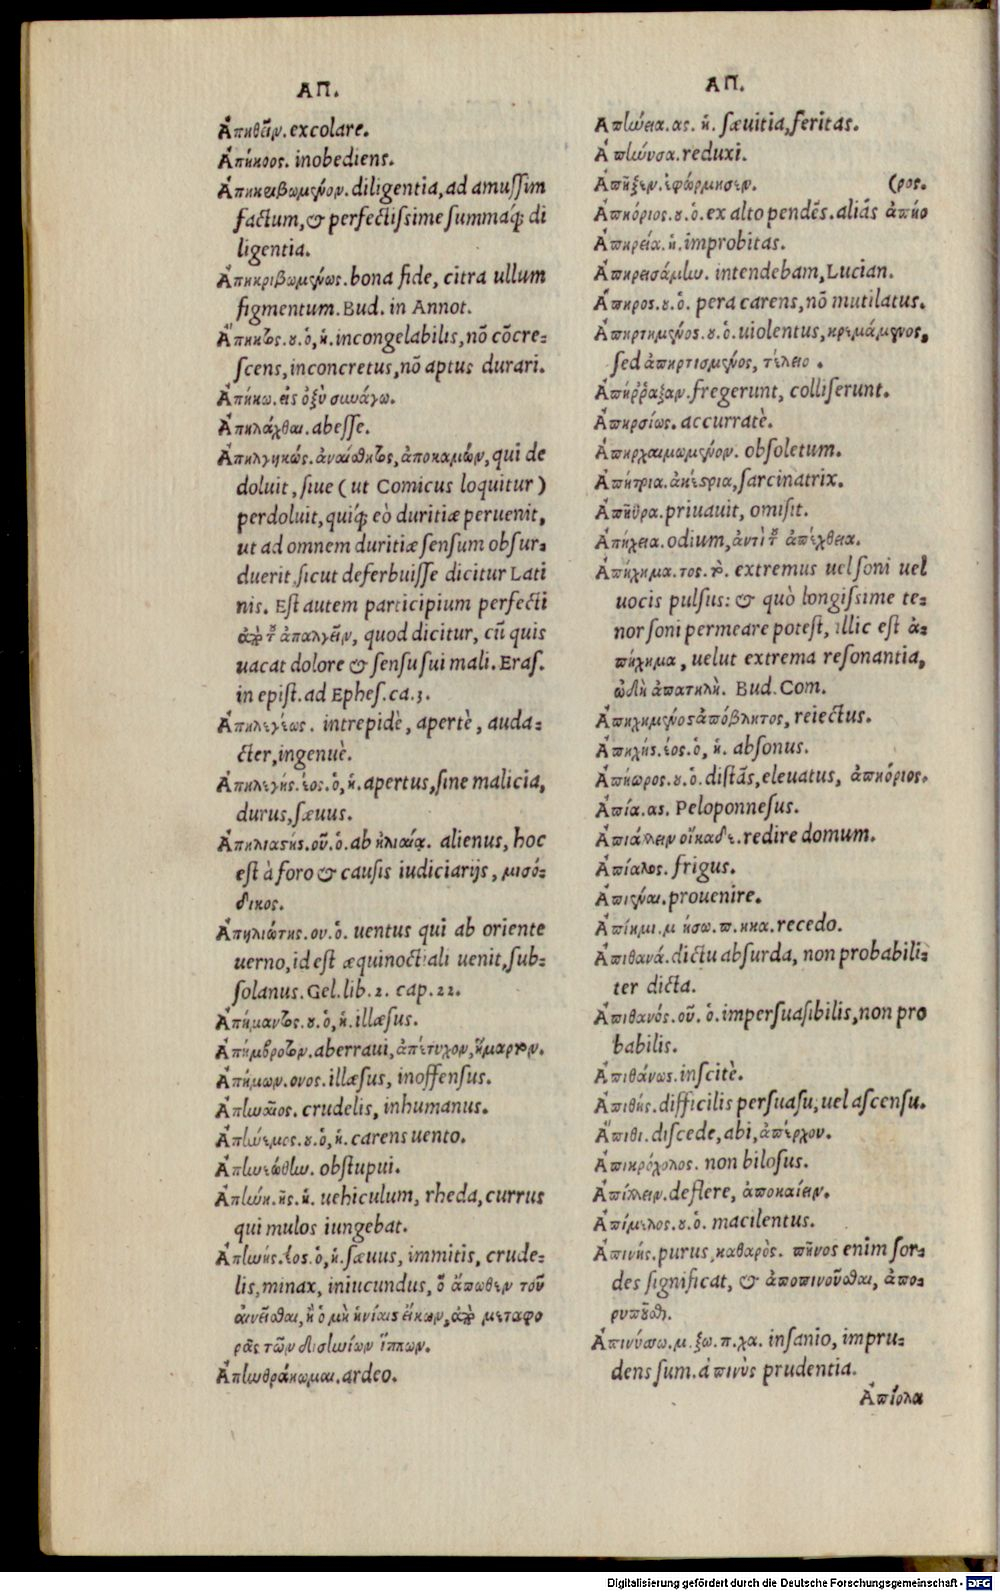 ΑΠ.
Ἀπηθεῖν. excolare.
Ἀπήκοος. inobediens.
Ἀπηκριβωμένον. diligentia, ad amuſſim
factum, & perfectiſsime ſummaq́; di
ligentia.
Ἀπηκριβωμένως. bona fide, citra ullum
figmentum. Bud. in Annot.
Ἄπηκτος. ȣ. ὁ, ἡ. incongelabilis, nõ cõcre-
ſcens, inconcretus, nõ aptus durari.
Ἀπήκω. εἰς ὀξὺ συνάγω.
Ἀπηλάχθαι. abeſſe.
Ἀπηλγηκώς. ἀναίσθητος, ἀποκαμών, qui de
doluit, ſiue (ut Comicus loquitur)
perdoluit, quiq́; eò duritiæ peruenit,
ut ad omnem duritiæ ſenſum obſur-
duerit, ſicut deferbuiſſe dicitur Lati
nis. Eſt autem participium perfecti
ἀπὸ τοῦ ἀπαλγεῖν, quod dicitur, cũ quis
uacat dolore & ſenſu ſui mali. Eraſ.
in epiſt. ad Epheſ. ca. 3.
Ἀπηλεγέως. intrepidè, apertè, auda-
cter, ingenuè.
Ἀπηλεγής. έος. ὁ, ἡ. apertus, ſine malicia,
durus, ſæuus.
Ἀπηλιαστής. οῦ. ὁ. ab ἡλιαία. alienus, hoc
eſt à foro & cauſis iudiciarijs, μισό-
δικος.
Ἀπηλιώτης. ου. ὁ. uentus qui ab oriente
uerno, id eſt æquinoctiali uenit, ſub-
ſolanus. Gel. lib. 2. cap. 22.
Ἀπήμαντος. ȣ. ὁ, ἡ. illæſus.
Ἀπήμβροτον. aberraui, ἀπέτυχον, ἥμαρτον.
Ἀπήμων. ονος. illæſus, inoffenſus.
Ἀπηναῖος. crudelis, inhumanus.
Ἀπήνεμος. ȣ. ὁ, ἡ. carens uento.
Ἀπηνεώθην. obſtupui.
Ἀπήνη. ης. ἡ. uehiculum, rheda, currus
qui mulos iungebat.
Ἀπηνής. έος. ὁ, ἡ. ſæuus, immitis, crude-
lis, minax, iniucundus, ὃ ἄπωθεν τοῦ
αἰνεῖσθαι, ἢ ὁ μὴ ἡνίαις εἴκων, ἀπὸ μεταφο
ρᾶς τῶν δυσηνίων ἵππων.
Ἀπηνθράκωμαι. ardeo.
ΑΠ.
Ἀπήνεια. ας. ἡ. ſæuitia, feritas.
Ἀπήνυσα. reduxi.
Ἀπῆξεν. ἐφώρμησεν.
(ρος.
Ἀπηόριος. ȣ. ὁ. ex alto pendẽs. aliâs ἀπήο
Ἀπηρεία. ἡ. improbitas.
Ἀπηρεισάμην. intendebam, Lucian.
Ἄπηρος. ȣ. ὁ. pera carens, nõ mutilatus.
Ἀπηρτημένος. ȣ. ὁ. uiolentus, κρεμάμενος,
ſed ἀπηρτισμένος, τέλειο .
Ἀπήῤῥαξαν. fregerunt, colliſerunt.
Ἀπηρσίως. accurratè.
Ἀπηρχαιωμένον. obſoletum.
Ἀπήτρια. ἀκέστρια, ſarcinatrix.
Ἀπηῦρα. priuauit, omiſit.
Ἀπήχεια. odium, ἀντὶ τοῦ ἀπέχθεια.
Ἀπήχημα. τος. τὸ. extremus uel ſoni uel
uocis pulſus: & quò longiſsime te-
nor ſoni permeare poteſt, illic eſt ἀ-
πήχημα, uelut extrema reſonantia,
ὠδὴ ἀπατηλή. Bud. Com.
Ἀπηχημένος ἀπόβλητος, reiectus.
Ἀπηχής. έος. ὁ, ἡ. abſonus.
Ἀπήωρος. ȣ. ὁ. diſtãs, eleuatus, ἀπηόριος.
Ἀπία. ας. Peloponneſus.
Ἀπιάλλειν οἴκαδε. redire domum.
Ἀπίαλος. frigus.
Ἀπιέναι. prouenire.
Ἀπίημι. μ ήσω. π. ηκα. recedo.
Ἀπιθανά. dictu abſurda, non probabili-
ter dicta.
Ἀπιθανός. οῦ. ὁ. imperſuaſibilis, non pro
babilis.
Ἀπιθάνως. inſcitè.
Ἀπιθής. difficilis perſuaſu, uel aſcenſu.
Ἄπιθι. diſcede, abi, ἀπέρχου.
Ἀπικρόχολος. non bilosus.
Ἀπίλλειν. deflere, ἀποκλαίειν.
Ἀπίμελος. ȣ. ὁ. macilentus.
Ἀπινής. purus, καθαρὸς. πῖνος enim ſor-
des ſignificat, & ἀποπινοῦσθαι, ἀπο-
ρυποῦσθαι.
Ἀπινύσσω. μ. ξω. π. χα. inſanio, impru-
dens ſum. ἀπινὺς prudentia.
Ἀπίολα
Digitalisierung gefördert durch die Deutsche Forschungsgemeinschaft - DFG